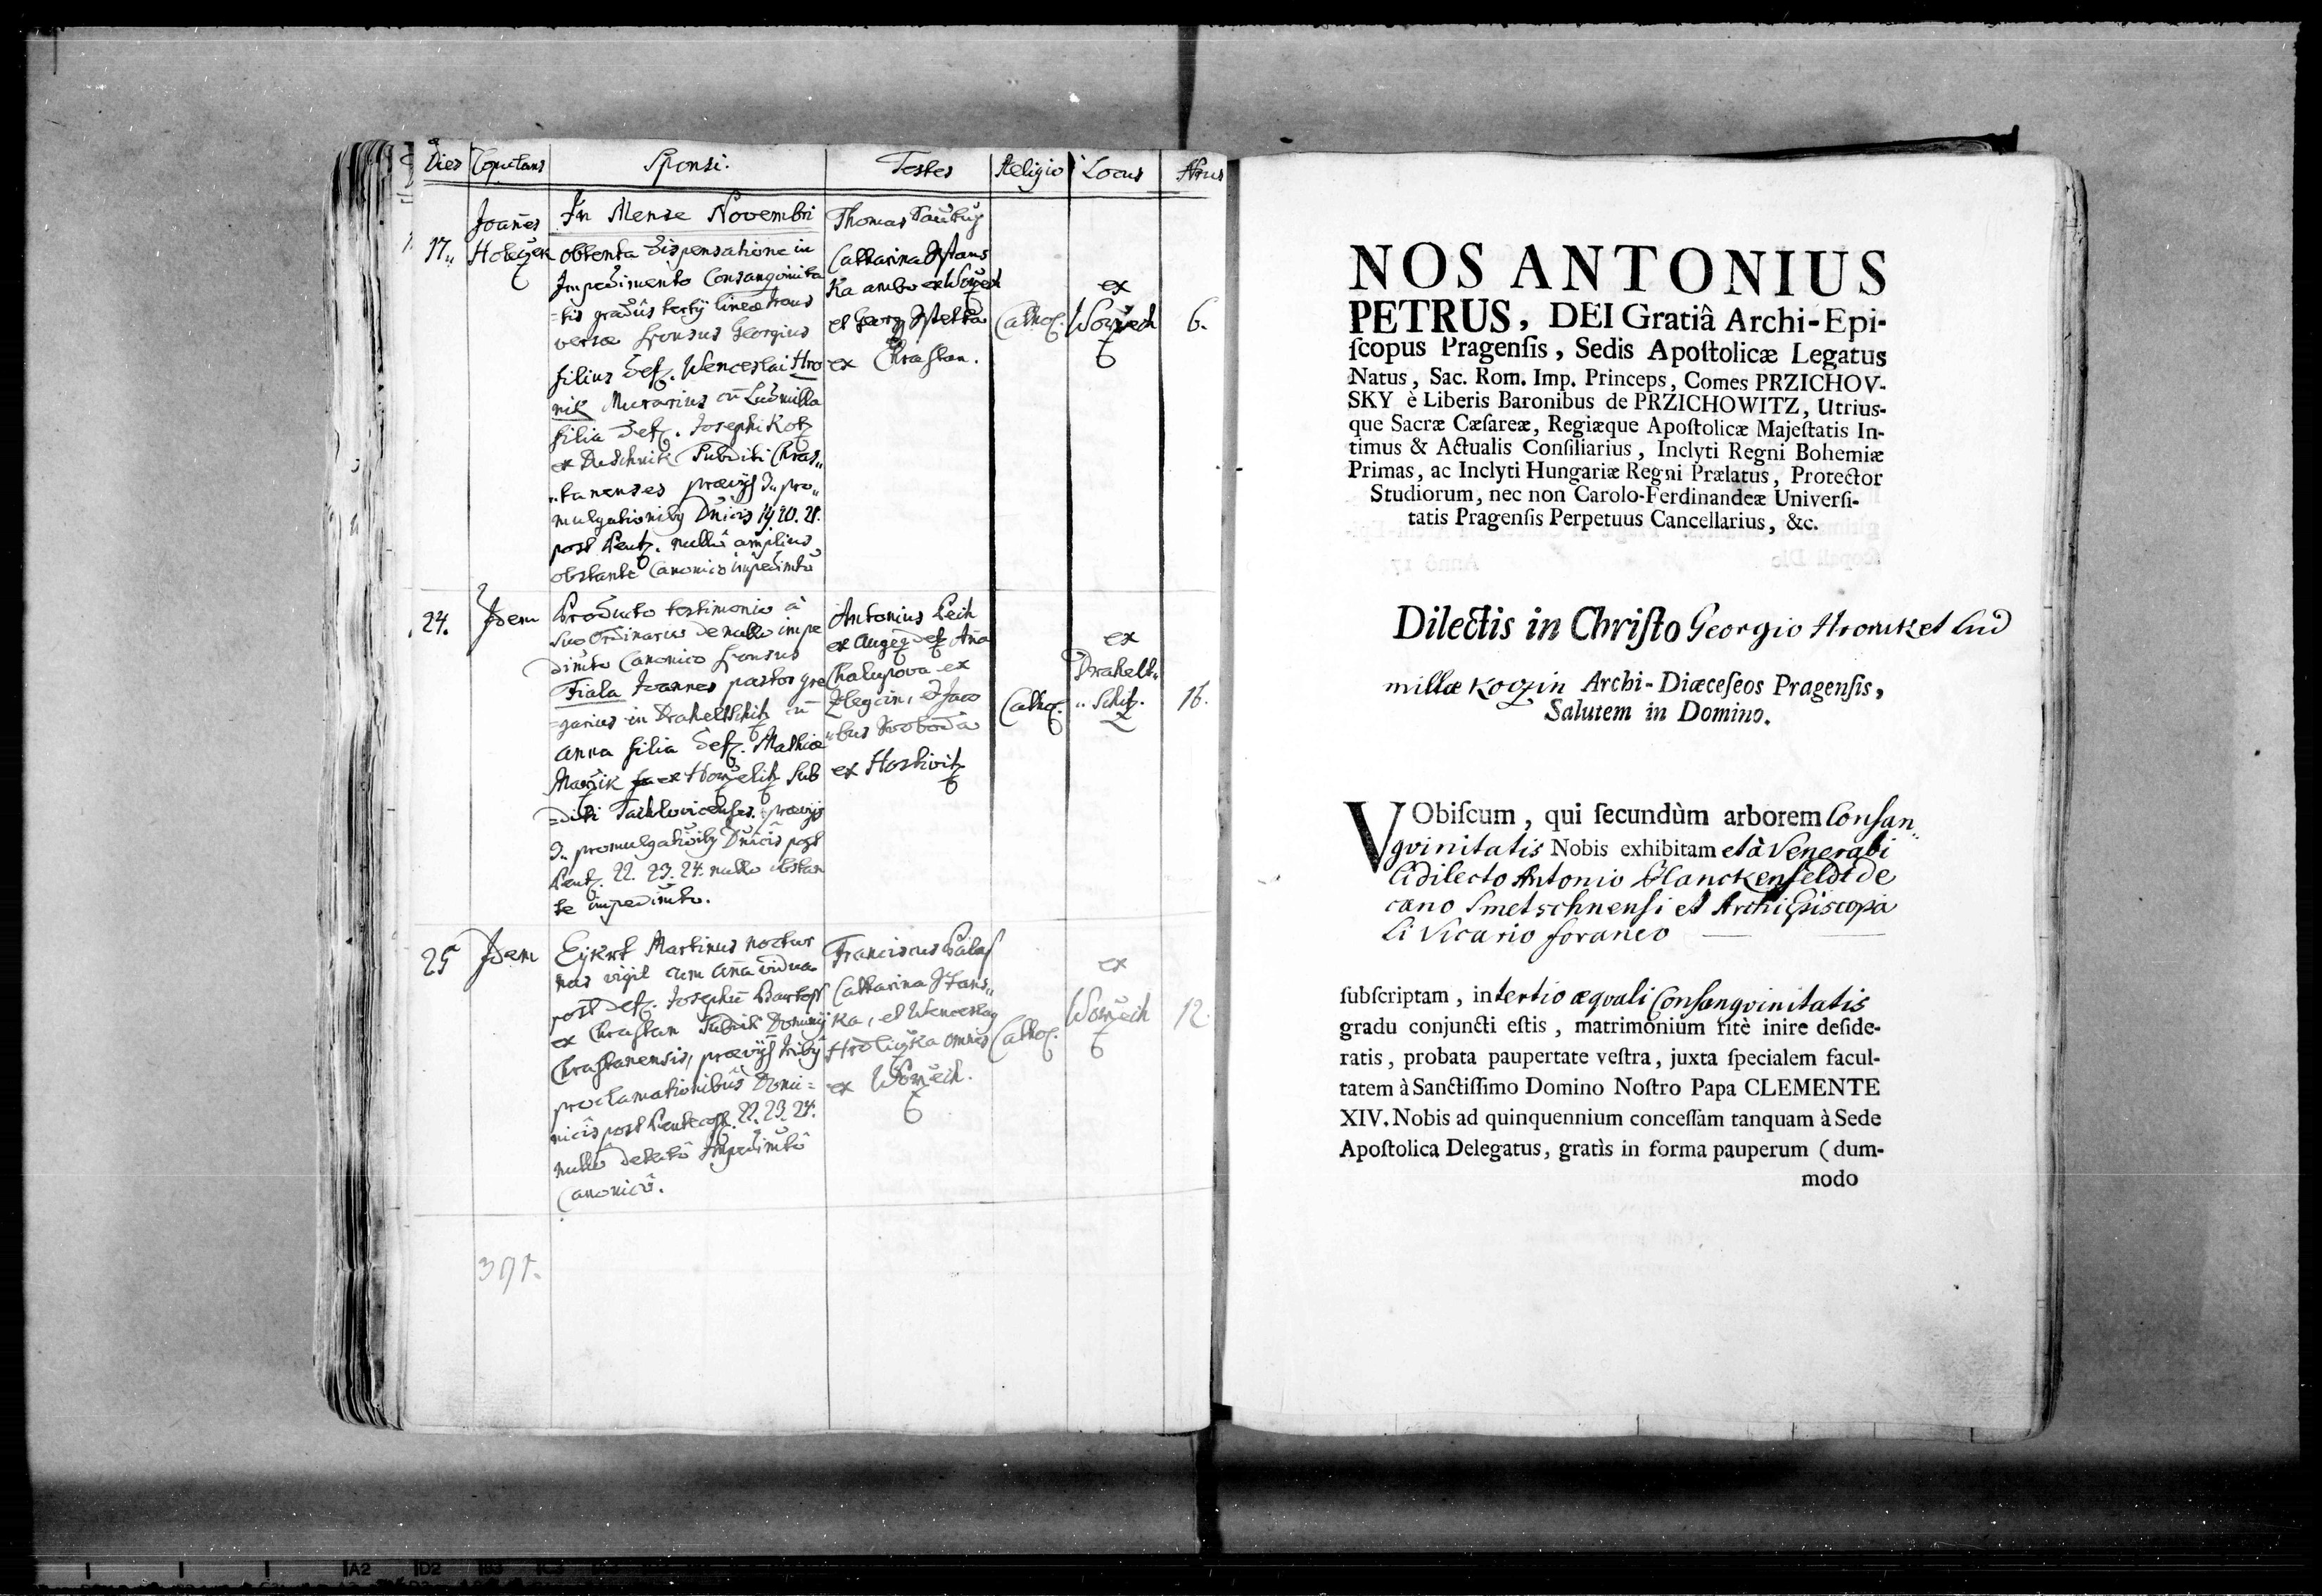 Dies Copulans Sponsi. Testes Religio Locus Nrus
Joañes
17. Holeczek
In Mense Novembri
obtenta dispensatione in
Impedimento Consangvinita
=tis gradûs tertÿ lineæ trans
versæ sponsus Georgius
filius def. Wenceslai Hro
nik Murarius cū Ludmilla
filia def. Josephi Kotz
ex Duschnik Subditi Chras„
„tanenses prævÿs 3. pro„
mulgationibꝫ Dñicis 19. 20. 21.
post Pent. nullô amplius
obstante Canonico impedimto
Thomas
Catharina Stans
Ka ambo ex Worzech
et Georg
ex Chrastan.
Cathol.
ex
Worzech
6.
24. Idem
Producto testimonio à
suo Ordinario de nullo impe
dimto Canonico sponsus
Fiala Joannes pastor gre
=garius in Draheltschitz cū
Anna filia def. Mathiæ
Marzik ex Horzelitz Sub
=diti Tachlovicenses. prævÿs
3. promulgatioībꝫ Dñicis post
Pent. 22. 23. 24. nullo obstan
te impedimto.
Antonius Pech
ex Augezd et Aña
Chalupova ex
Zlegcin, et Jaco
„bus Swoboda
ex Hostivitz
Cathol.
ex
Drahelt„
„schitz.
16.
25 Idem
Eykert Martinus noctur
nus vigil cum Aña vidua
post def. Josephū Bartoss
ex Chrastan Subditi Dominÿ
Chrastanensis, prævÿs tribꝫ
proclamationibus Domi=
nicis post Pentecost. 22. 23. 24.
nullô detectô Impedimtô
Canonicô.
Franciscus
Catharina Stans„
Ka, et Wenceslaꝫ
Hrdliczka omnes
ex Worzech.
Cathol.
ex
Worzech
12.
391.
NOS ANTONIUS
PETRUS, DEI Gratiâ Archi-Epi-
ſcopus Pragenſis, Sedis Apoſtolicæ Legatus
Natus, Sac. Rom. Imp. Princeps, Comes PRZICHOV-
SKY è Liberis Baronibus de PRZICHOWITZ, Utrius-
que Sacræ Cæſareæ, Regiæque Apoſtolicæ Majeſtatis In-
timus & Actualis Conſiliarius, Inclyti Regni Bohemiæ
Primas, ac Inclyti Hungariæ Regni Prælatus, Protector
Studiorum, nec non Carolo-Ferdinandeæ Univerſi-
tatis Pragenſis Perpetuus Cancellarius, &c.
Dilectis in Chriſto Georgio Hronik et Lud
millæ Kotzin Archi-Diœceſeos Pragenſis,
Salutem in Domino.
VObiſcum, qui ſecundùm arborem Conſan„
gvinitatis Nobis exhibitam et à Venerabi
li dilecto Antonio Planckenfeldt de
cano Smetschnensi et Archi Episcopa
li Vicario foraneo
ſubſcriptam, in tertio æquali Conſangvinitatis
gradu conjuncti eſtis, matrimonium ritè inire deſide-
ratis, probata paupertate veſtra, juxta ſpecialem facul-
tatem à Sanctiſſimo Domino Noſtro Papa CLEMENTE
XIV. Nobis ad quinquennium conceſſam tanquam à Sede
Apoſtolica Delegatus, gratìs in forma pauperum (dum-
modo